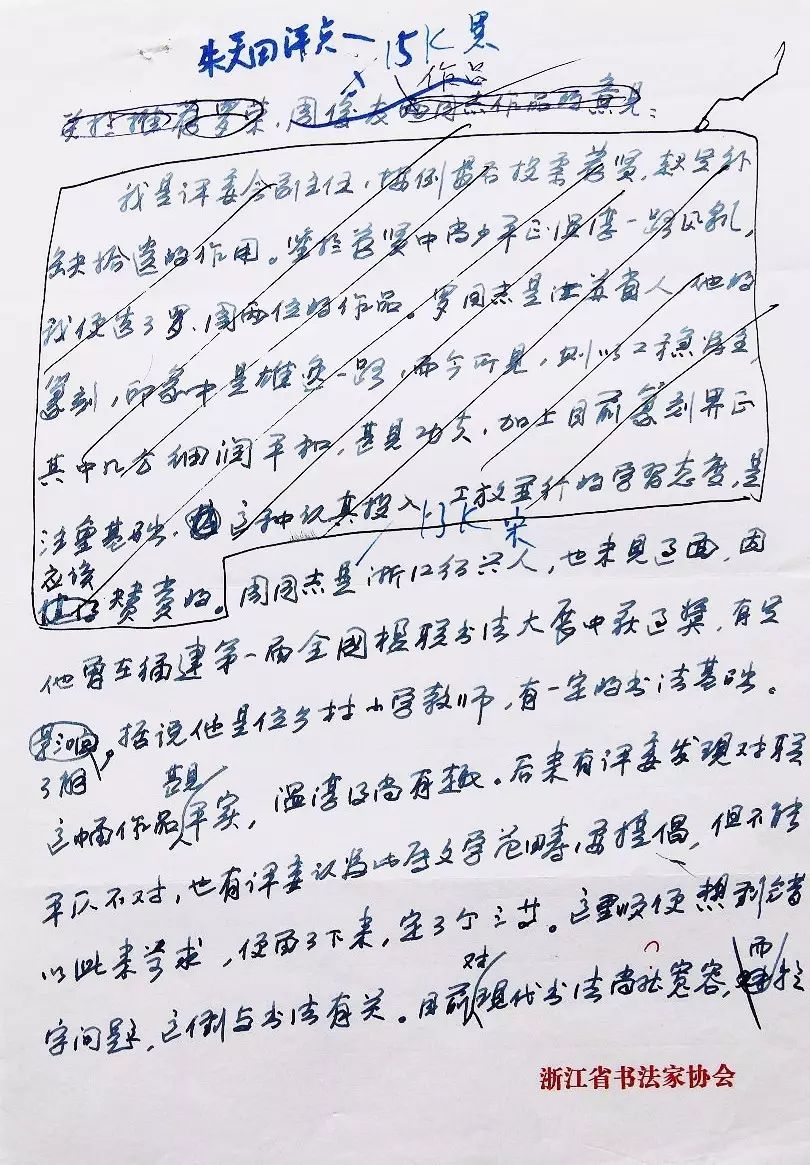 朱关田评点一 15K黑
作品
关于推荐罗荣、周俊友两同志作品的意见：
我是评委会副主任，按例要否投票荐贤，起点补
缺拾遗的作用。鉴于荐贤中尚少平正温淳一路风気，
我便选了罗、周两位的作品。罗同志是江苏省人，他的
篆刻，印象中是雄逸一路，而今所见，则以工稳为主，
其中几方细润平和，甚见功夫，加上目前篆刻界正
注重基础，这种认真投入、工放并行的学习态度，是
13K 宋
应该
值得赞赏的。周同志是浙江绍兴人，也未见过面，因
他曾在福建第一届全国楹联书法大展中获过奖，有点
影响，据说他是位乡村小学教师，有一定的书法基础。
了解 甚见
这幅作品平实，温淳得尚有趣。后来有评委发现对联
平仄不对，也有评委认为此属文学范畴，要提倡，但不能
以此来苛求，便留了下来，定了个三等。这里顺便想到错
对 而
字问题，这倒与书法有关。目前现代书法尚能宽容，于
浙江省书法家协会